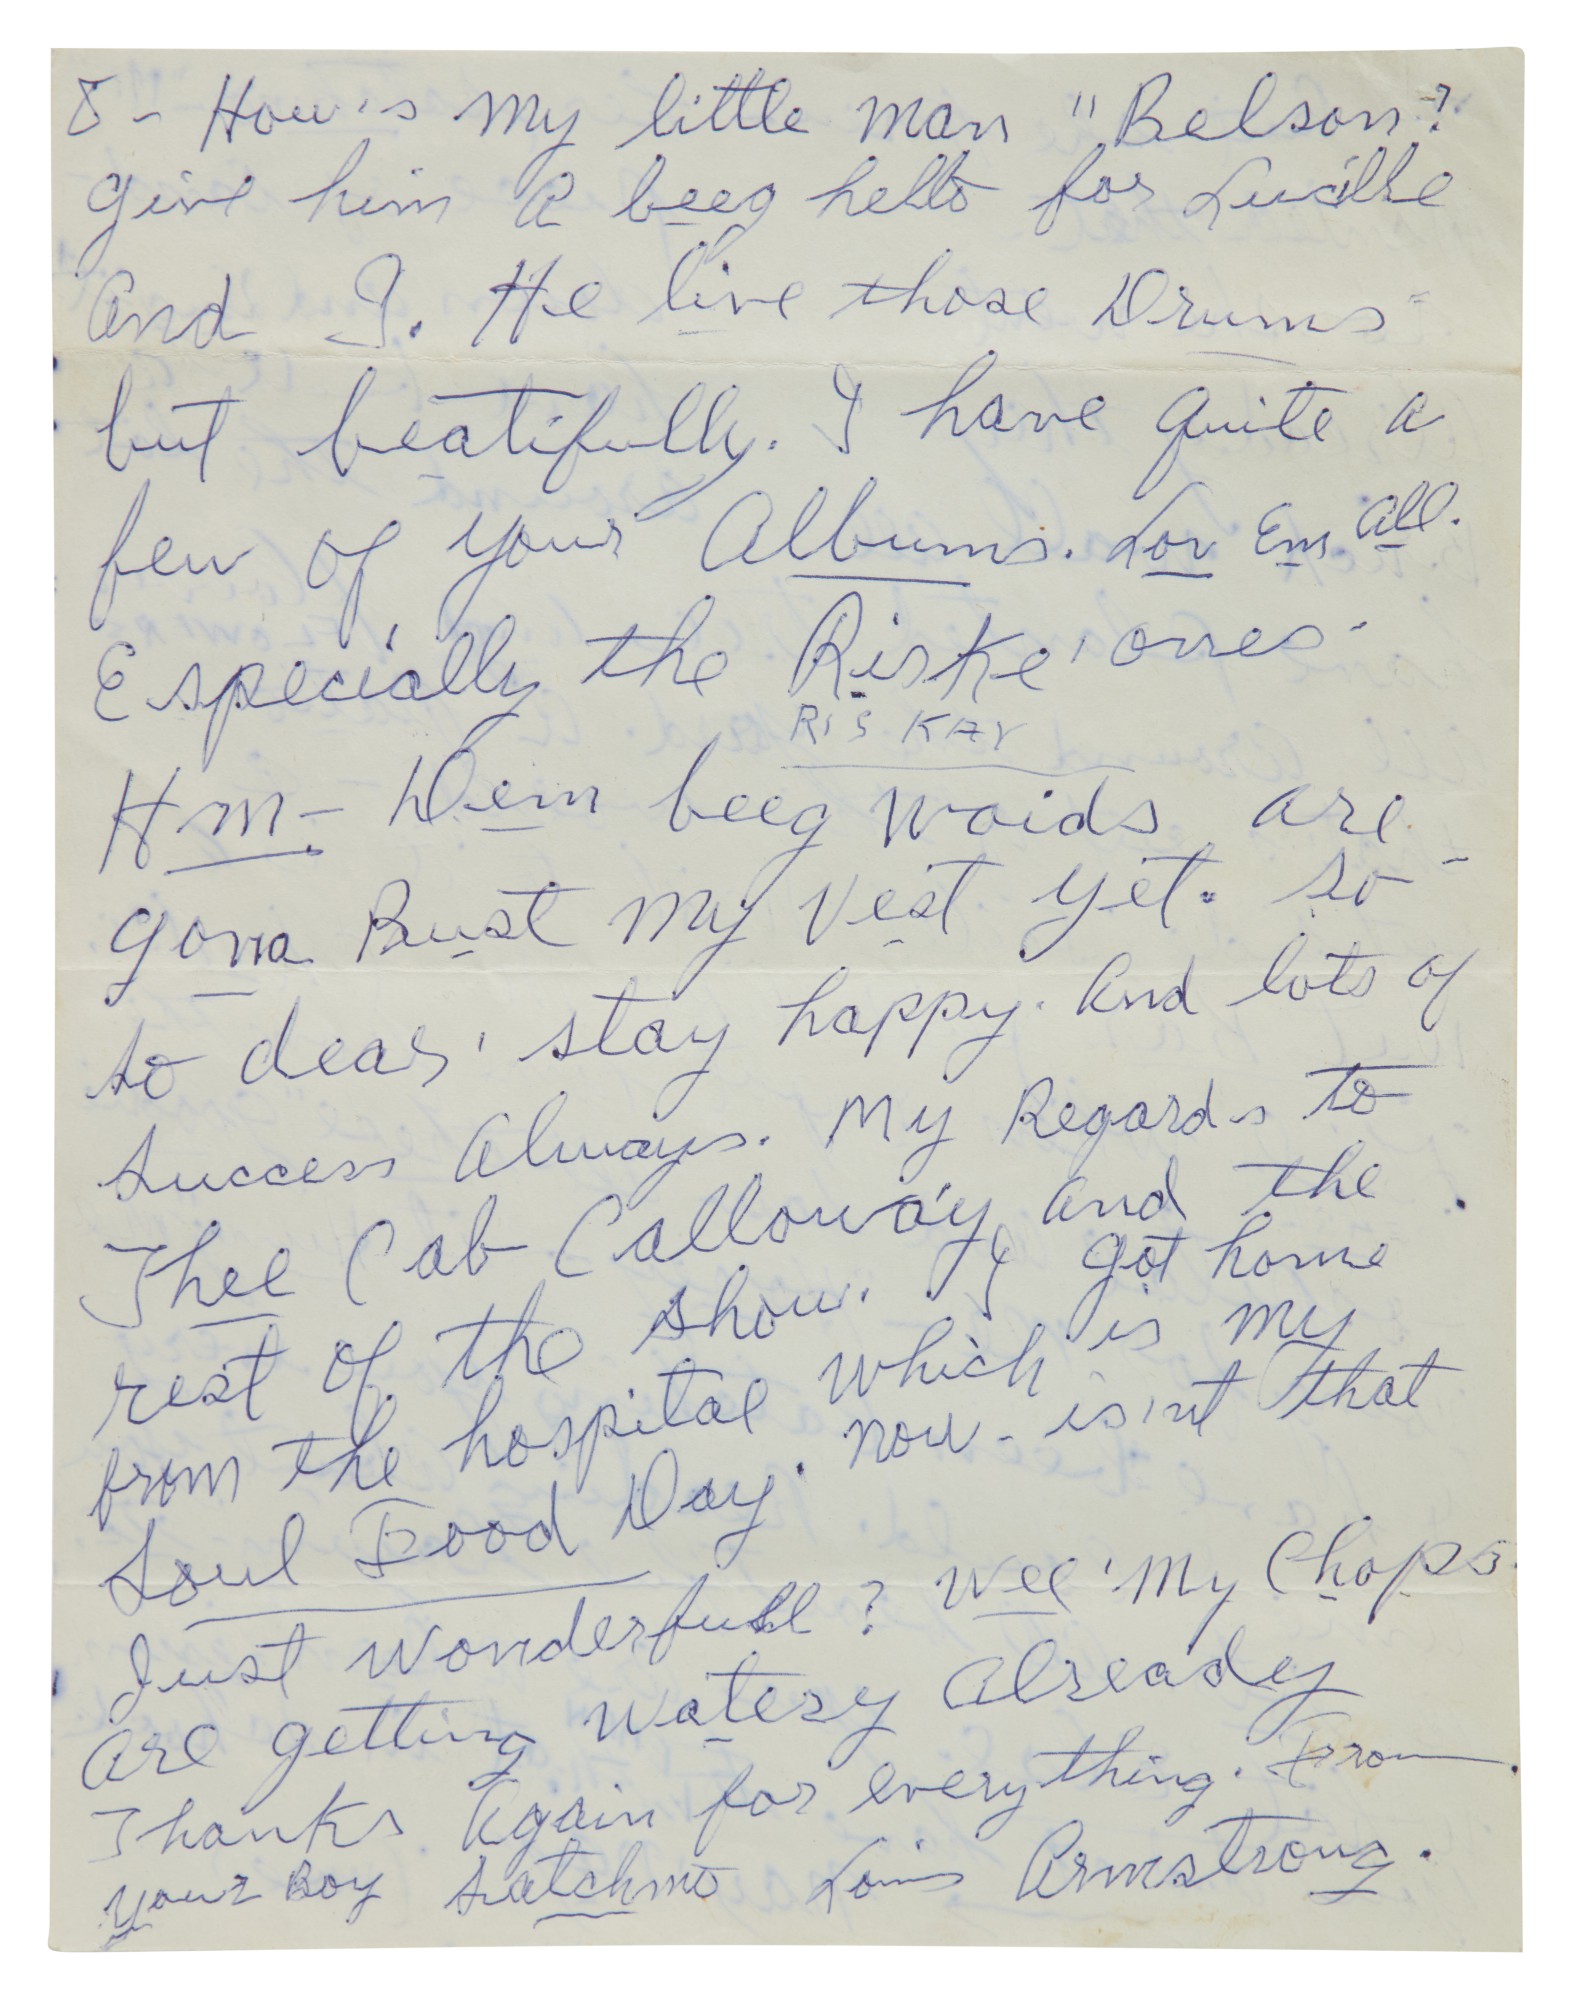 8 - How's my little man "Belson?
Give him a beeg hello for Lucille
and I. He live those Drums
but beatifully. I have quite a
few of your Albums. Lov Em All.
Especially the Riske' ones -
RIS KAY
Hm - Dem beeg Woids are
gona Bust my Vest yet. So -
so dear, stay happy. And lots of
success Always. My Regards to
Thee Cab Calloway and the
rest of the show. I got home
from the hospital which is my
Soul Food Day. Now - is'nt that
Just Wonderfull? Wee 'My Chops
are getting Watery Already
Thanks Again for everything. From
your Boy Satchmo Louis Armstrong.